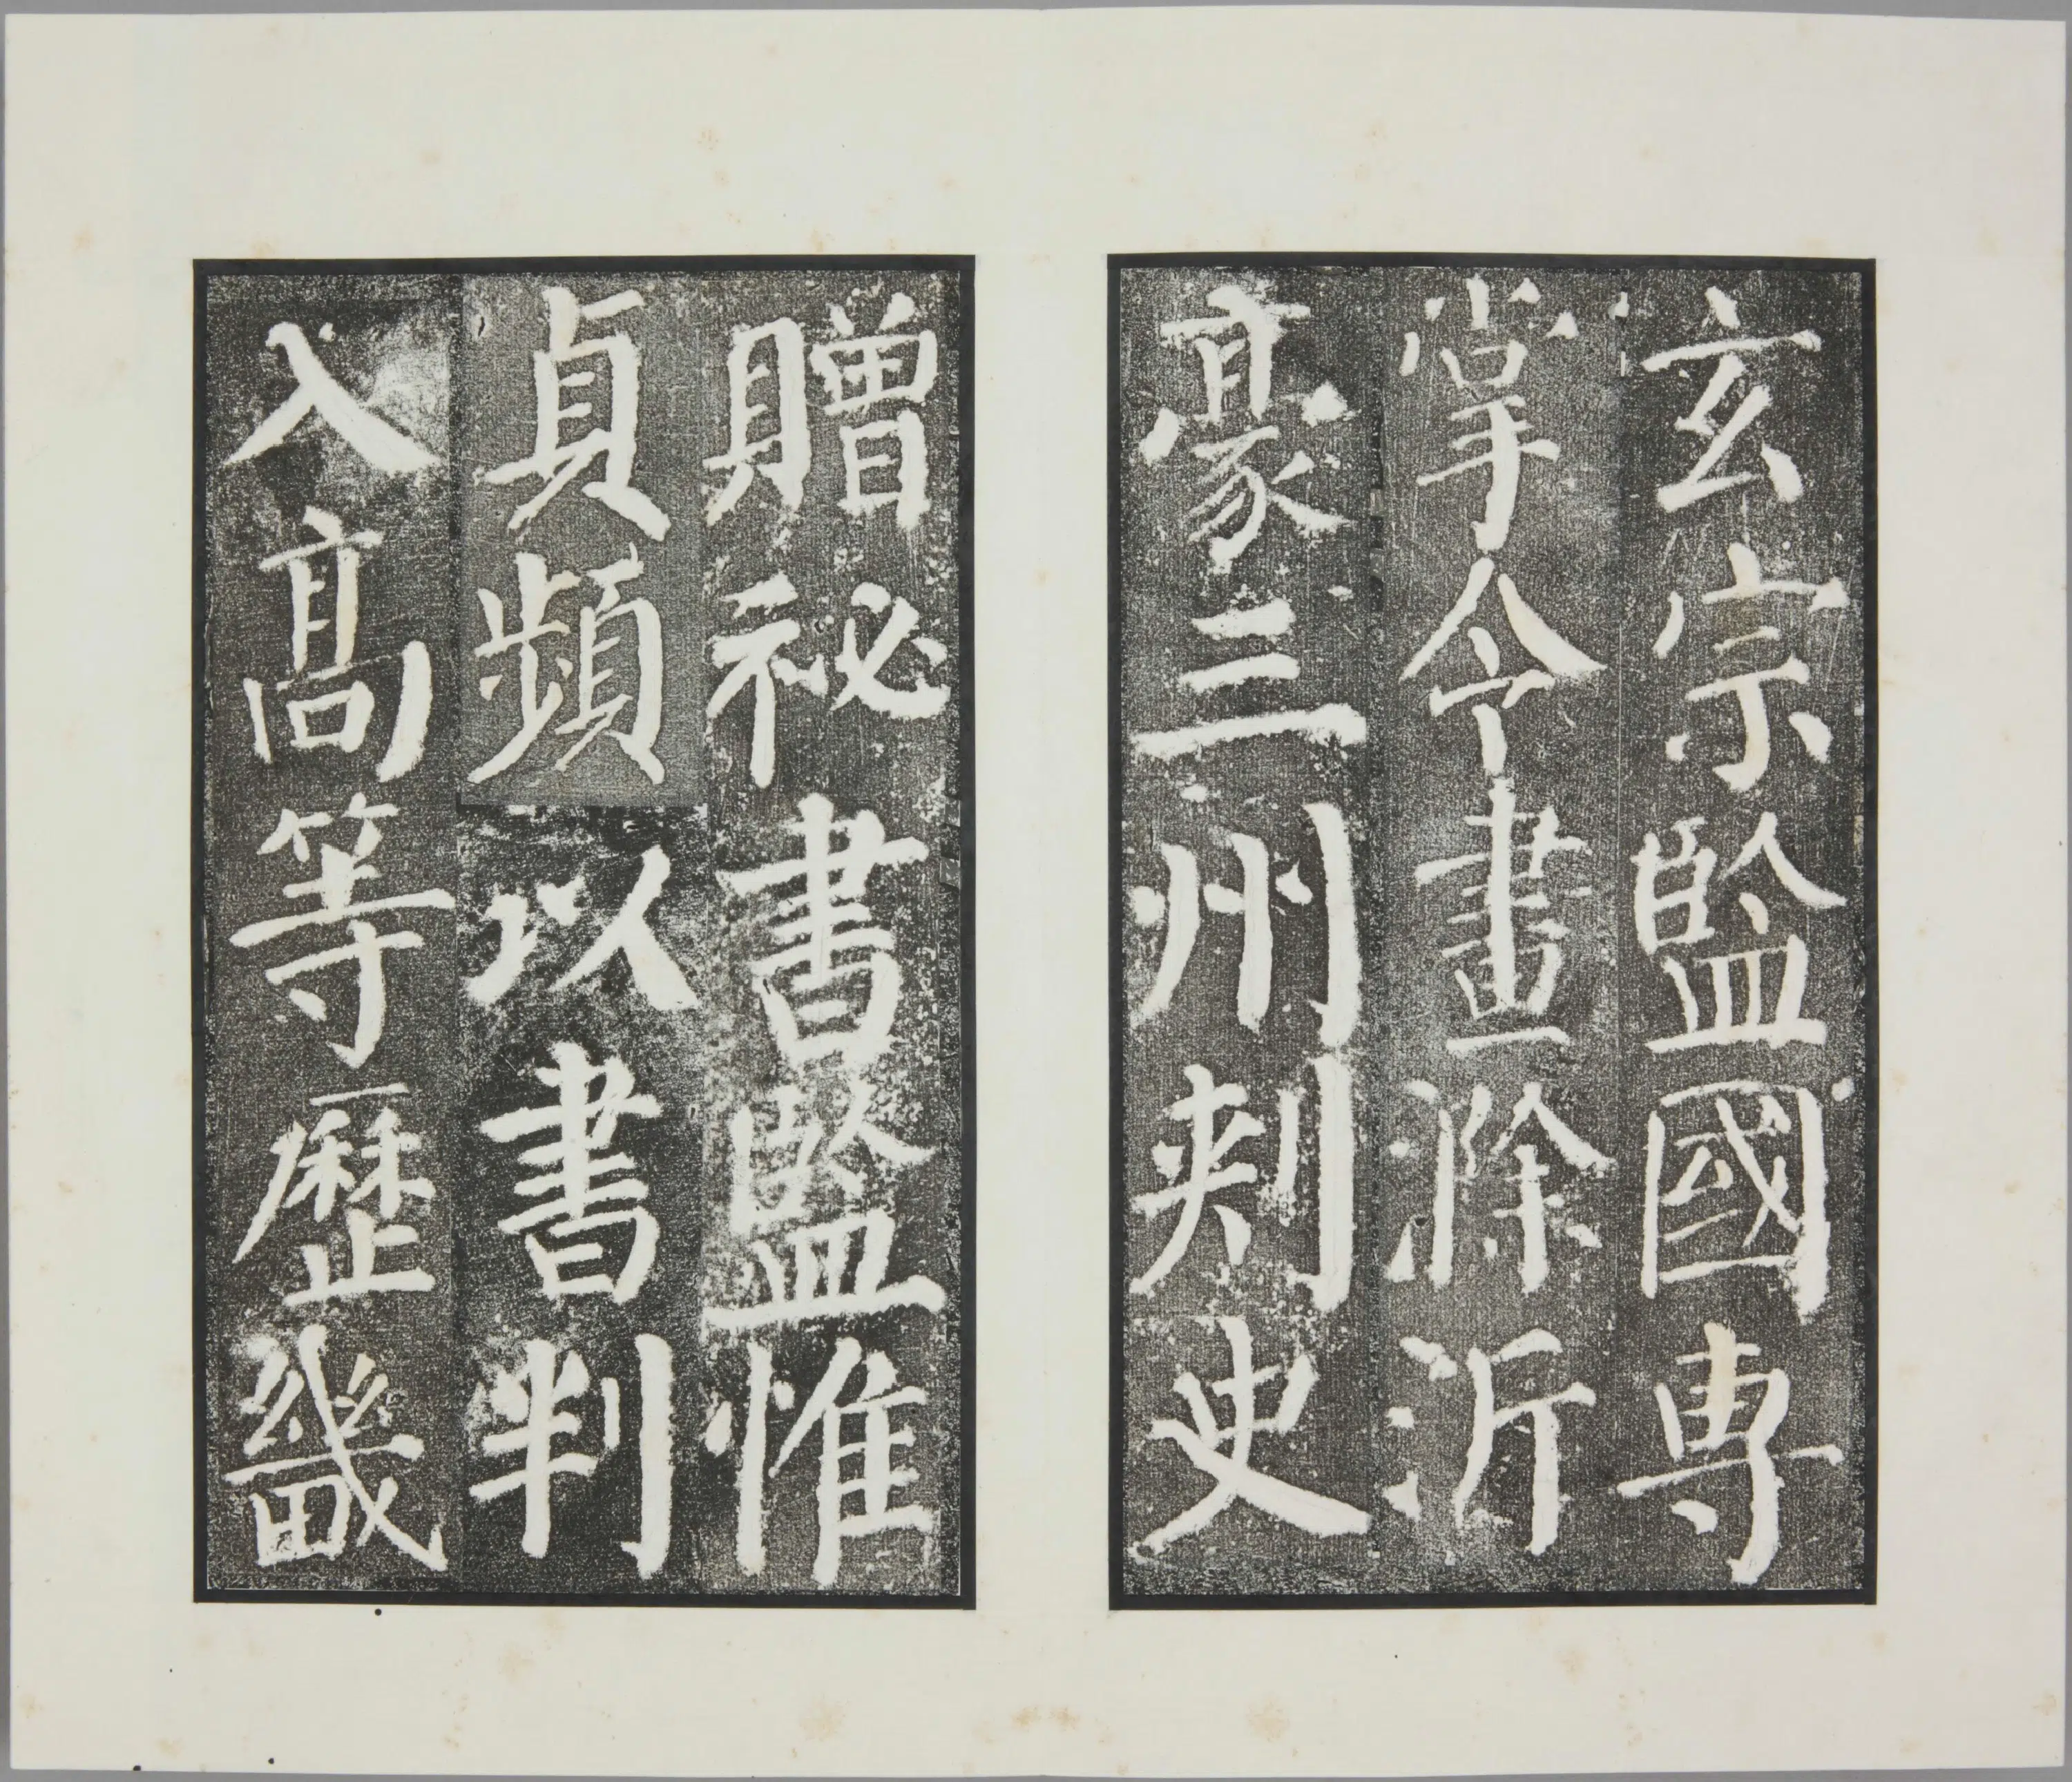 玄宗監國專
掌令畫滁沂
濠三州刺史
贈祕書監惟
貞頻以書判
入高等歷畿